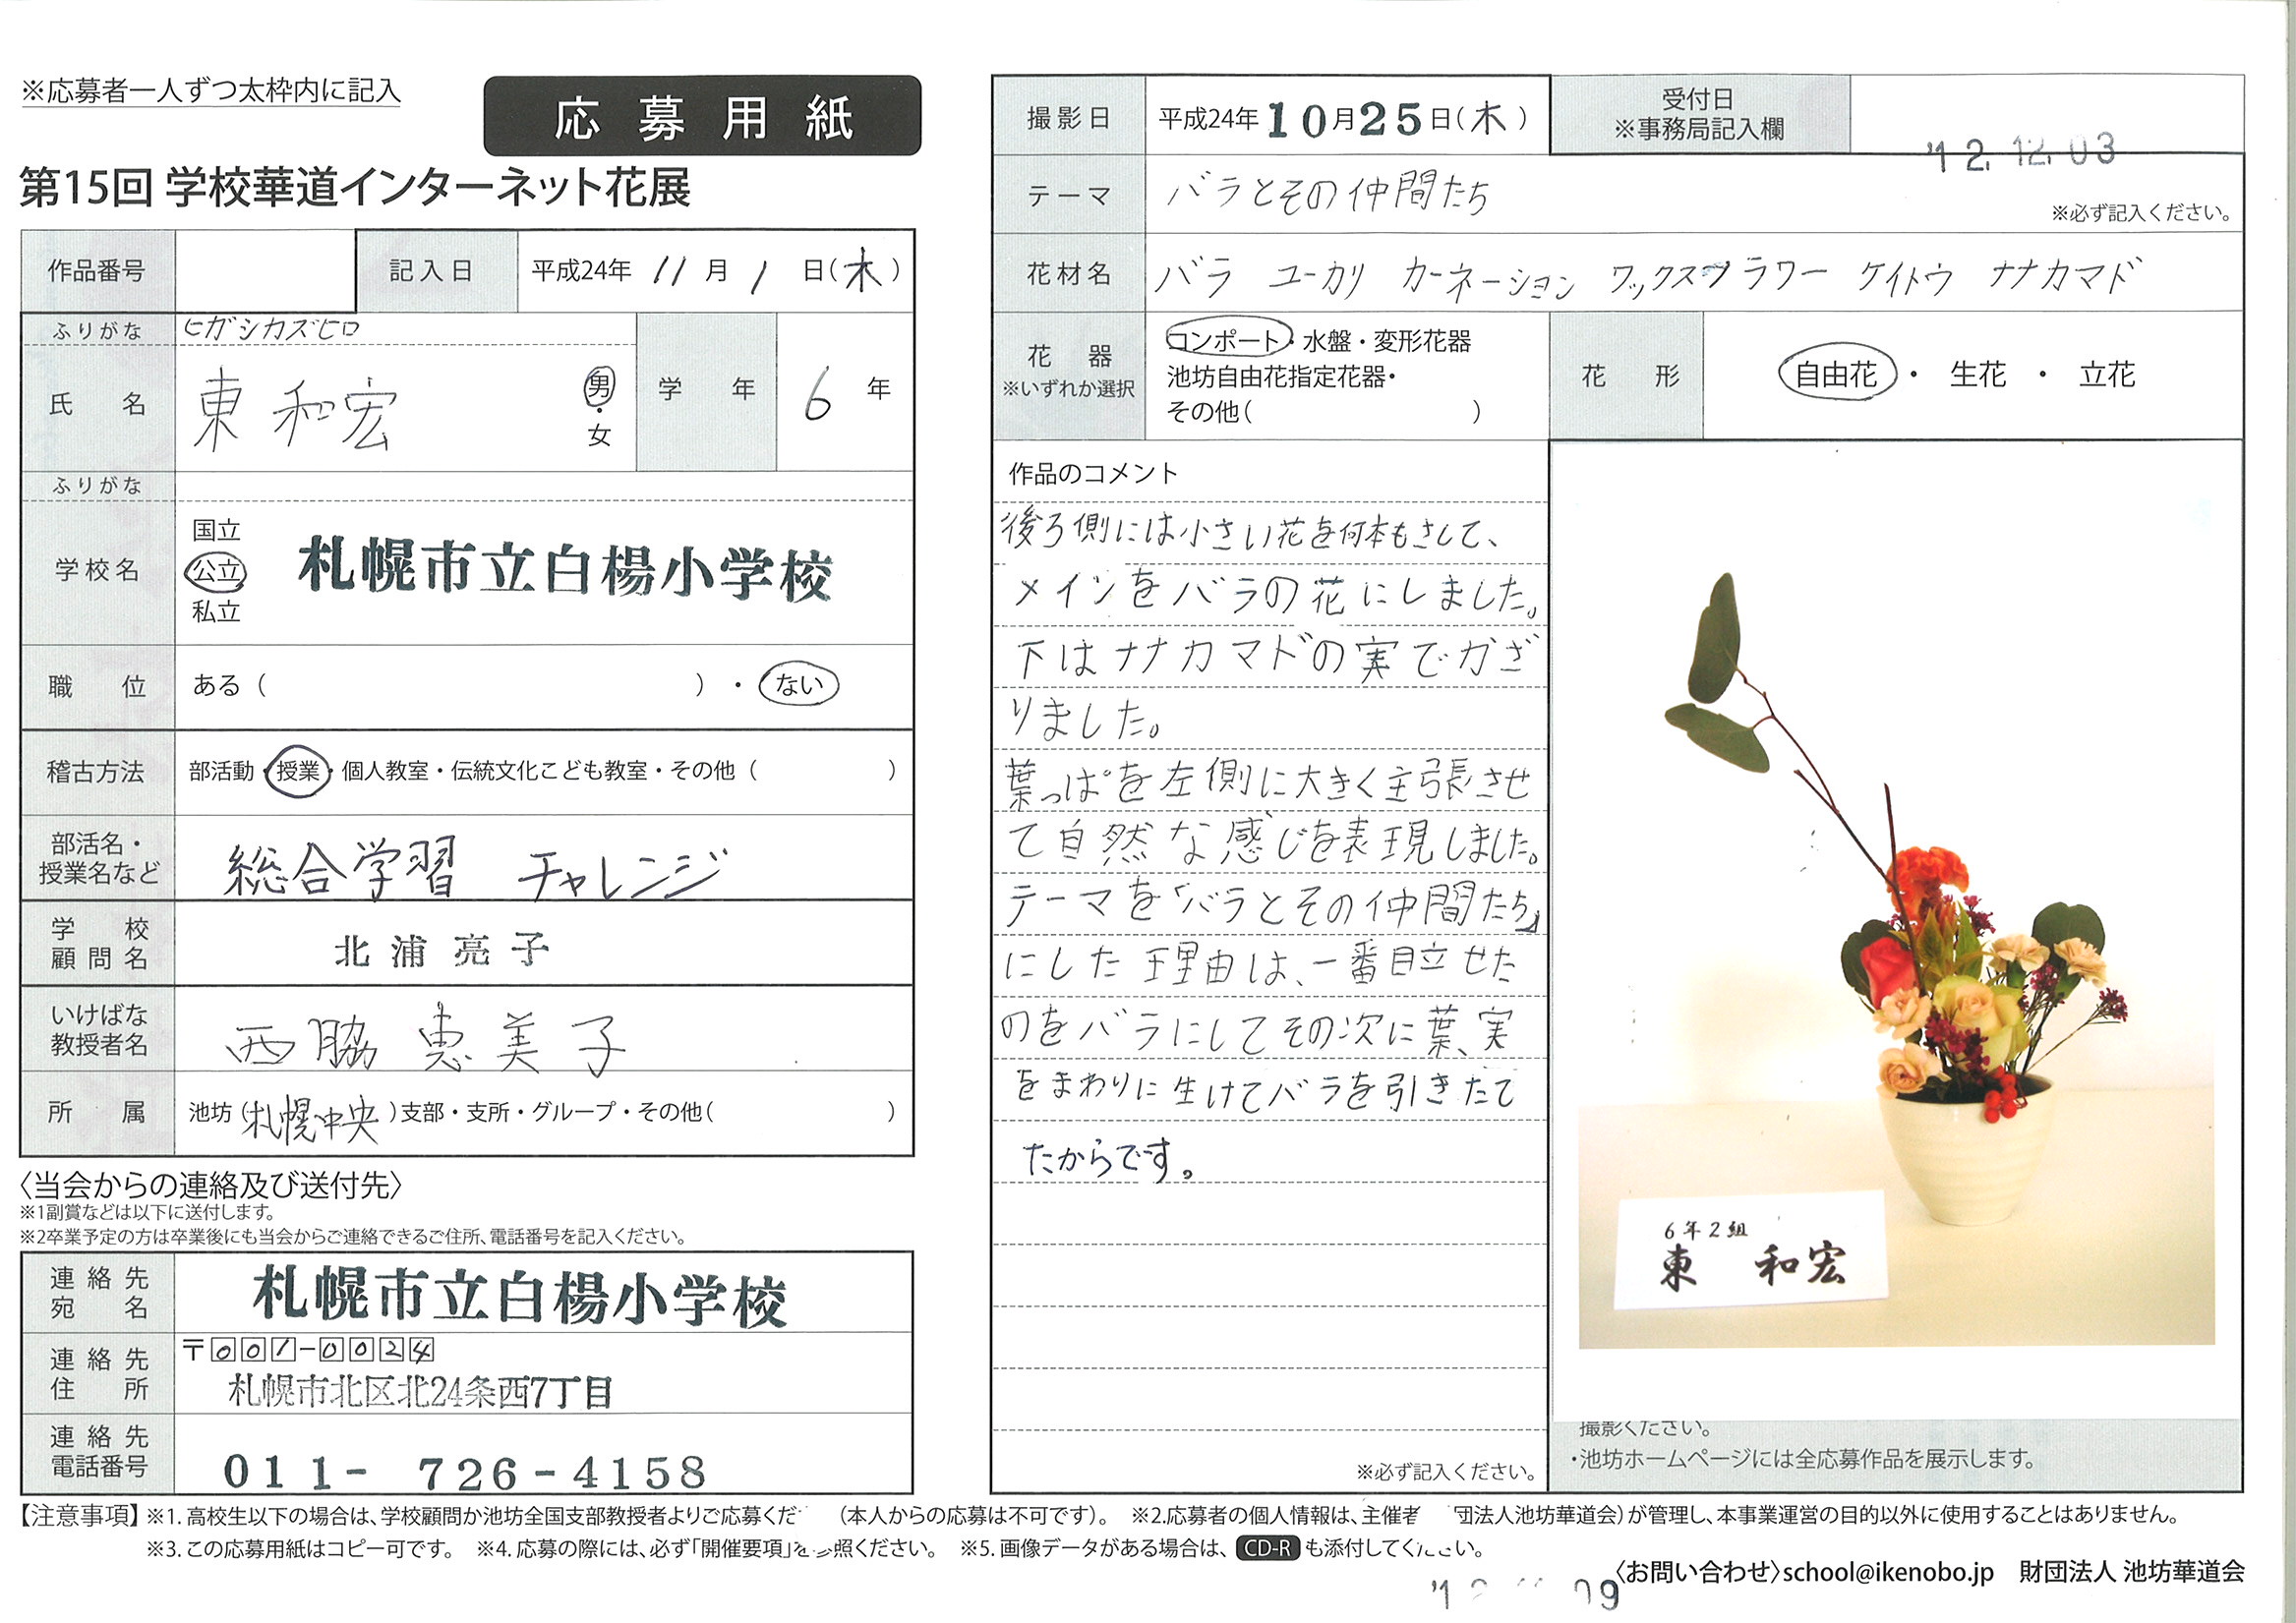 ※応募者一人ずつ太枠内に記入
応募用紙
第15回 学校華道インターネット花展
作品番号
記入日 平成24年 11月 1日(木)
ふりがな ヒガシカズヒロ
氏名 東 和宏 男・女
学年 6年
ふりがな
学校名 国立 公立 私立 札幌市立白楊小学校
職位 ある( )・ない
稽古方法 部活動・授業・個人教室・伝統文化こども教室・その他( )
部活名・授業名など 総合学習 チャレンジ
学校顧問名 北浦亮子
いけばな教授者名 西脇 恵美子
所属 池坊(札幌中央)支部・支所・グループ・その他( )
〈当会からの連絡及び送付先〉
※1副賞などは以下に送付します。
※2卒業予定の方は卒業後にも当会からご連絡できるご住所、電話番号を記入ください。
連絡先宛名 札幌市立白楊小学校
連絡先住所 〒001-0024
札幌市北区北24条西7丁目
連絡先電話番号 011-726-4158
撮影日 平成24年10月25日(木)
受付日
※事務局記入欄
'12.12.03
テーマ バラとその仲間たち
※必ず記入ください。
花材名 バラ ユーカリ カーネーション ワックスフラワー ケイトウ ナナカマド
花器 ※いずれか選択
コンポート・水盤・変形花器
池坊自由花指定花器・
その他( )
花形 自由花・生花・立花
作品のコメント
後ろ側には小さい花を何本もさして、
メインをバラの花にしました。
下はナナカマドの実でかざ
りました。
葉っぱを左側に大きく主張させ
て自然な感じを表現しました。
テーマを「バラとその仲間たち」
にした理由は、一番目立せた
のをバラにしてその次に葉、実
をまわりに生けてバラを引きたて
たからです。
※必ず記入ください。
6年2組
東 和宏
撮影ください。
・池坊ホームページには全応募作品を展示します。
【注意事項】※1.高校生以下の場合は、学校顧問か池坊全国支部教授者よりご応募くだ (本人からの応募は不可です)。 ※2.応募者の個人情報は、主催者 団法人池坊華道会)が管理し、本事業運営の目的以外に使用することはありません。
※3.この応募用紙はコピー可です。 ※4.応募の際には、必ず「開催要項」を参照ください。 ※5.画像データがある場合は、CD-Rも添付してください。
〈お問い合わせ〉school@ikenobo.jp 財団法人 池坊華道会